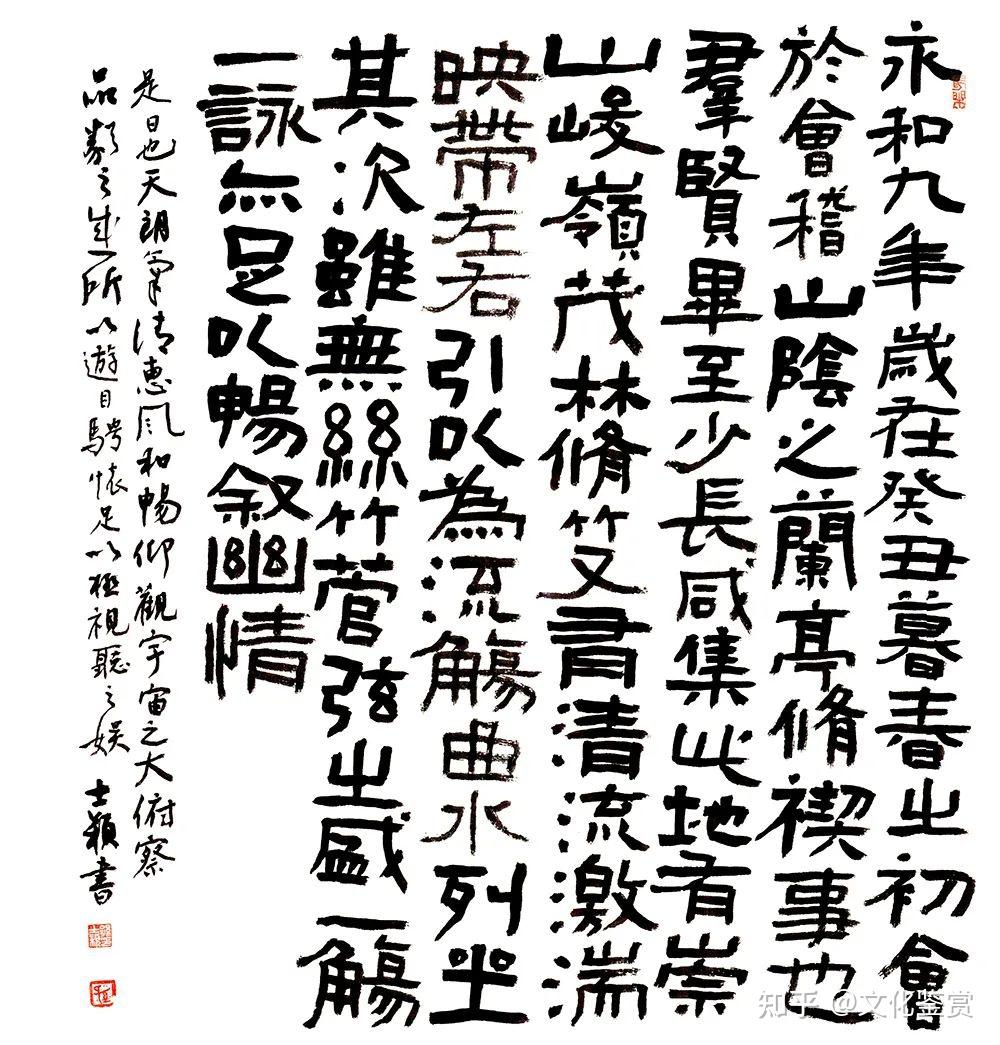 永和九年歲在癸丑暮春之初會
於會稽山陰之蘭亭脩禊事也
羣賢畢至少長咸集此地有崇
山峻嶺茂林脩竹又有清流激湍
映帶左右引以為流觴曲水列坐
其次雖無絲竹管弦之盛一觴
一詠亦足以暢敘幽情
是日也天朗氣清惠風和暢仰觀宇宙之大俯察
品類之盛所以遊目騁懷足以極視聽之娛 士書
知乎 @文化鉴赏